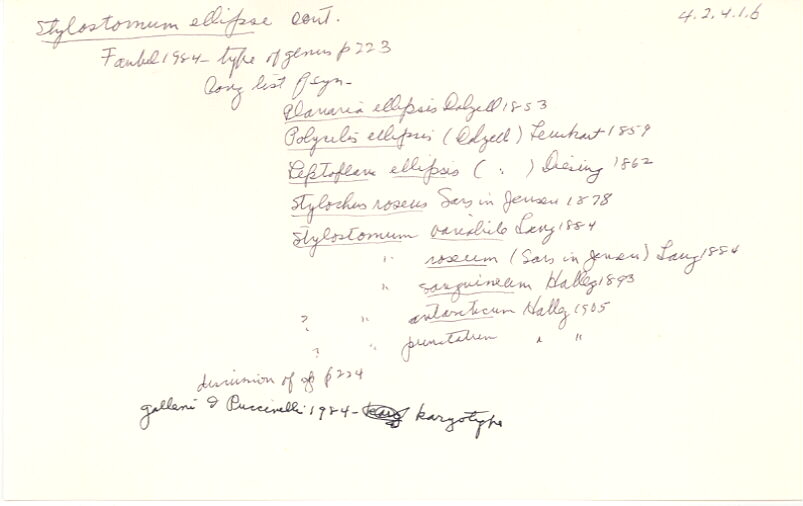 Stylostomum ellipse cont.
4.2.4.1.6
Faubel 1984 - type of genus p 223
Long list of syn -
Planaria ellipsis Dalzell 1853
Polycelis ellipsis (Dalzell) Leuckart 1859
Leptoplana ellipsis ( " ) Diesing 1862
Stylochus roseus Sars in Jensen 1878
Stylostomum variabile Lang 1884
" roseum (Sars in Jensen) Lang 1884
" sanguineum Hallez 1893
? " antarcticum Hallez 1905
? " punctatum " "
discussion of sp p 224
Galleni & Puccinelli 1984 - karyotype